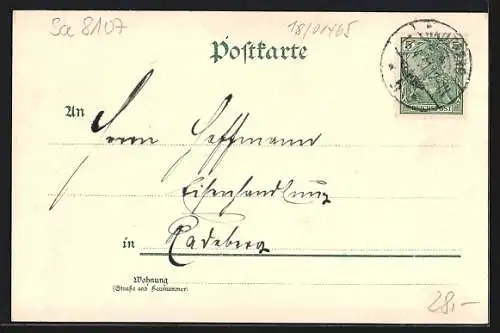 Sa 8107
18/01465
Postkarte
5
An
Herrn Hoffmann
Eisenhandlung
in Radeberg
Wohnung
(Straße und Hausnummer)
28,-